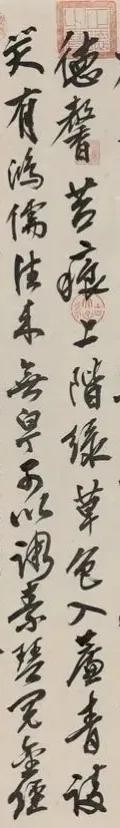 德馨苔痕上階緑草色入簾青談
笑有鴻儒往来無白丁可以調素琴閲金經